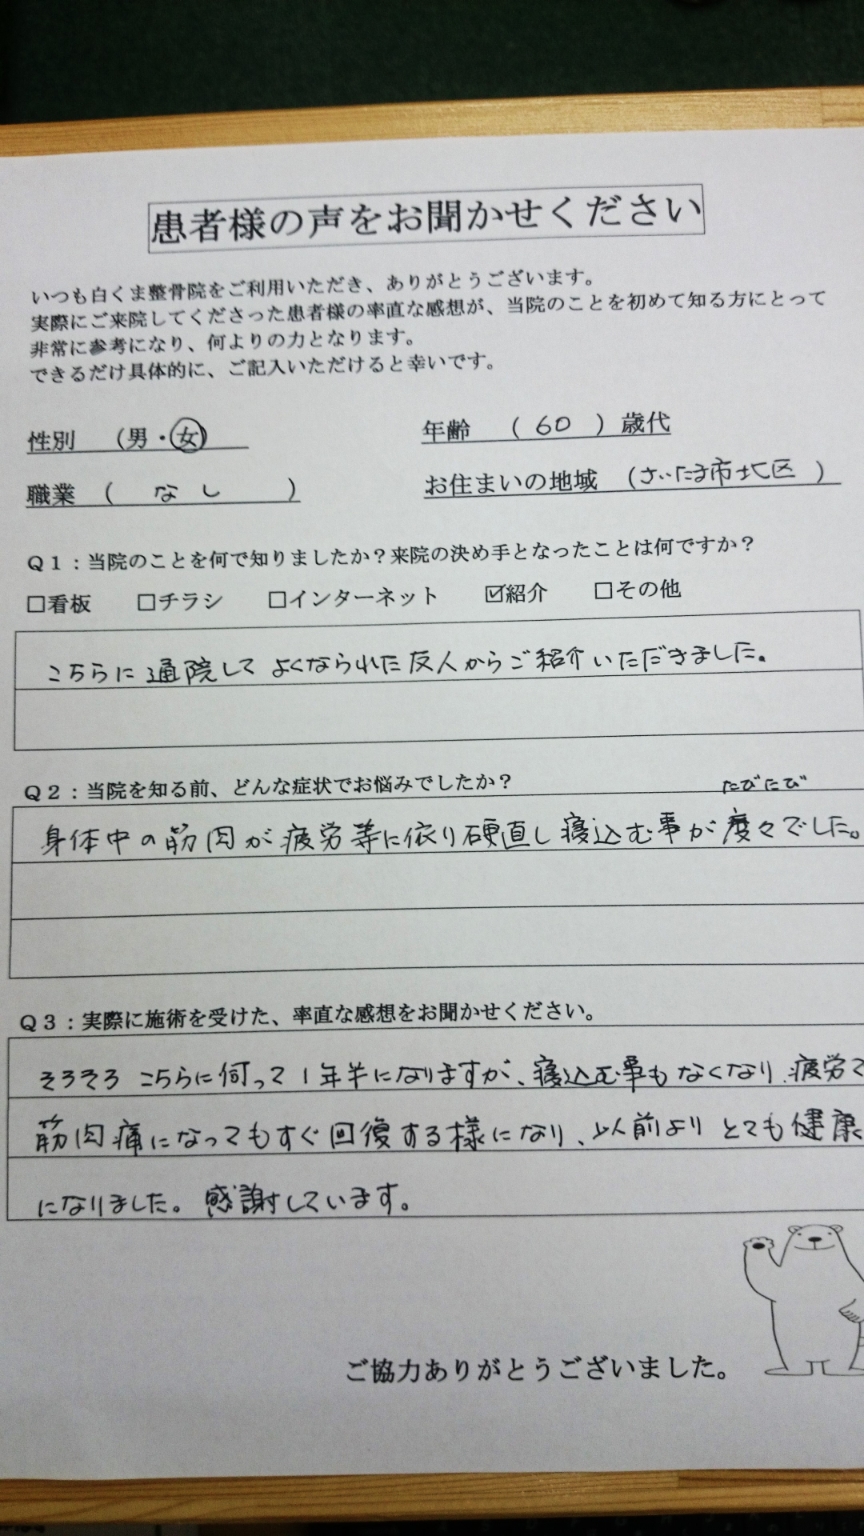 患者様の声をお聞かせください
いつも白くま整骨院をご利用いただき、ありがとうございます。
実際にご来院してくださった患者様の率直な感想が、当院のことを初めて知る方にとって
非常に参考になり、何よりの力となります。
できるだけ具体的に、ご記入いただけると幸いです。
性別 (男・女) 年齢 (60)歳代
職業 (なし) お住まいの地域 (さいたま市北区)
Q1:当院のことを何で知りましたか?来院の決め手となったことは何ですか?
□看板 □チラシ □インターネット ☑紹介 □その他
こちらに通院してよくなられた友人からご紹介いただきました。
Q2:当院を知る前、どんな症状でお悩みでしたか?
たびたび
身体中の筋肉が疲労等に依り硬直し寝込む事が度々でした。
Q3:実際に施術を受けた、率直な感想をお聞かせください。
そろそろこちらに伺って1年半になりますが、寝込む事もなくなり、疲労で
筋肉痛になってもすぐ回復する様になり、以前よりとても健康
になりました。感謝しています。
ご協力ありがとうございました。